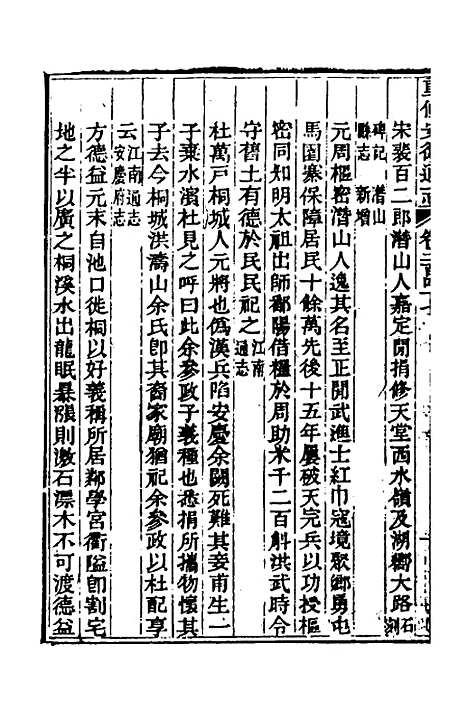 重修安徽通志
宋裴百二郎潛山人嘉定閒捐修天堂西水嶺及湖鄉大路石刻
碑記 潛山縣志 新增
元周樞密潛山人逸其名至正閒武漁士紅巾寇境聚鄉勇屯
馬園寨保障居民十餘萬先後十五年屢破天完兵以功授樞
密同知明太祖出師鄱陽借糧於周助米千二百斛洪武時令
守舊土有德於民民祀之江南通志
杜萬戸桐城人元將也僞漢兵陷安慶余闕死難其妾甫生一
子棄水濱杜見之呼曰此余參政子義種也悉捐所攜物懷其
子去今桐城洪濤山余氏卽其裔家廟猶祀余參政以杜配享
云江南通志安慶府志
方德益元末自池口徙桐以好義稱所居鄰學宮衢隘卽割宅
地之半以廣之桐溪水出龍眠暴漲則激石漂木不可渡德益